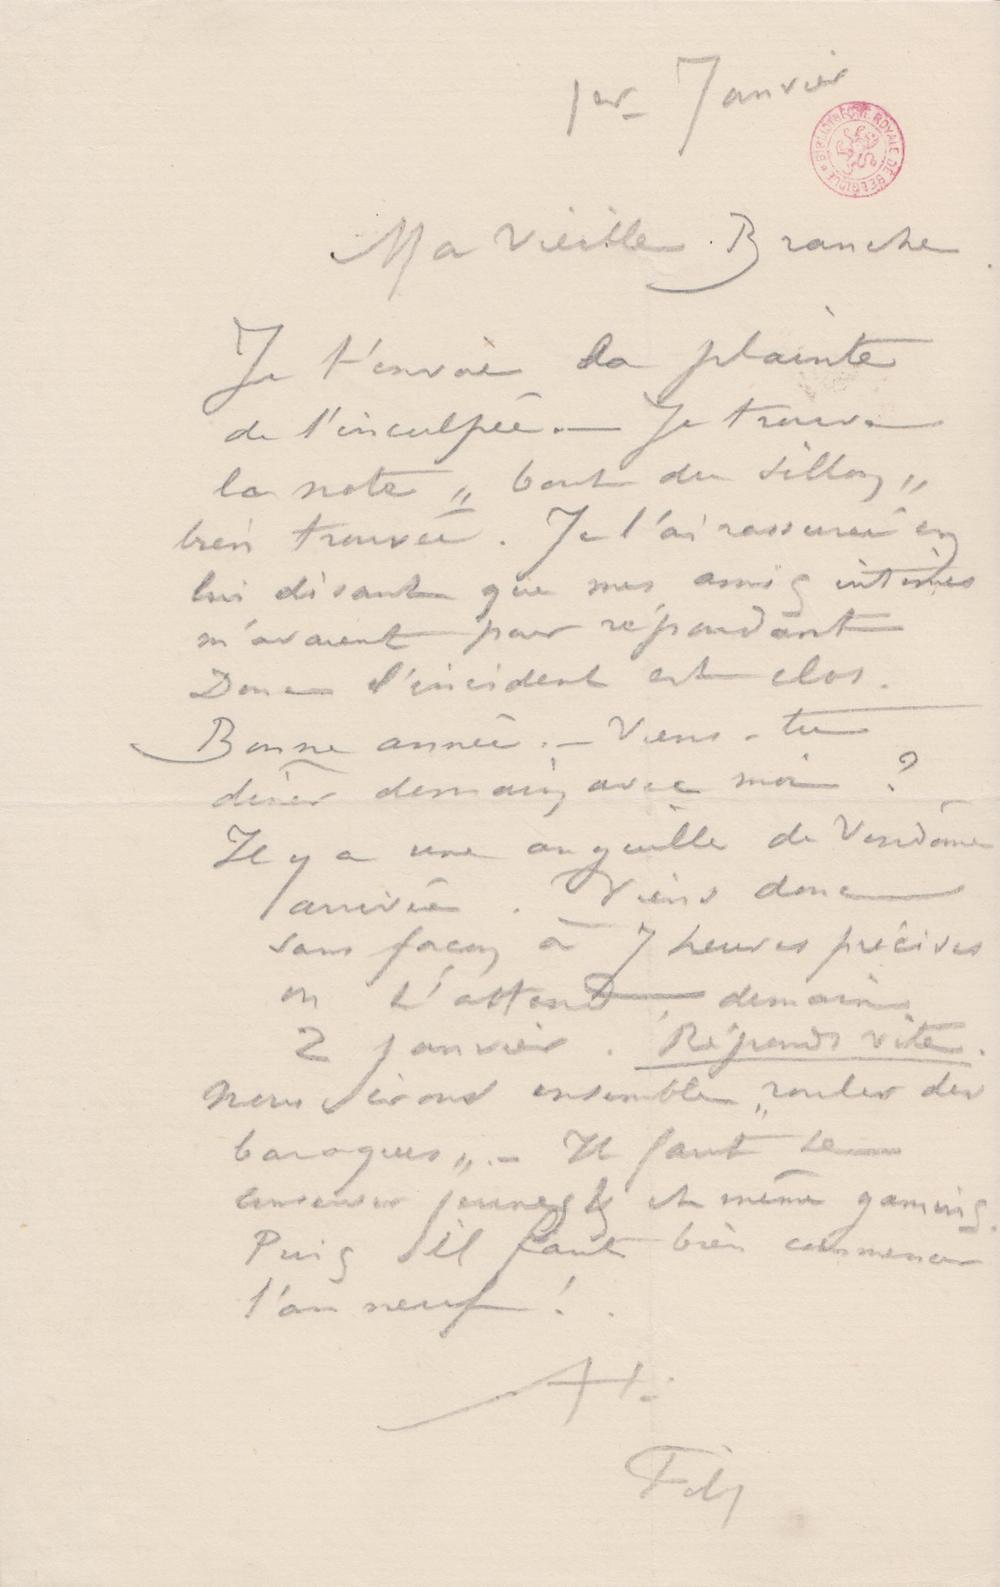 1er Janvier
BIBLIOTHÈQUE ROYALE DE BELGIQUE
Ma Vieille Branche
Je t'envoie la plainte
de l'inculpée. — Je trouve
la note „ bout du sillon „
bien trouvée. Je l'ai rassurée en
lui disant que mes amis intimes
m'avaient pour répondant
Donc l'incident est clos.
Bonne année. — Viens-tu
dîner demain, avec moi ?
Il y a une anguille de Vendôme
arrivée. Viens donc
sans façon à 7 heures précises
on t'attend, demain
2 janvier. Réponds vite.
nous irons ensemble „ rouler des
baraques „. — Il faut se
conserver jeunes & et même gamins.
Puis il faut bien commencer
l'an neuf !.
A t.
Fély